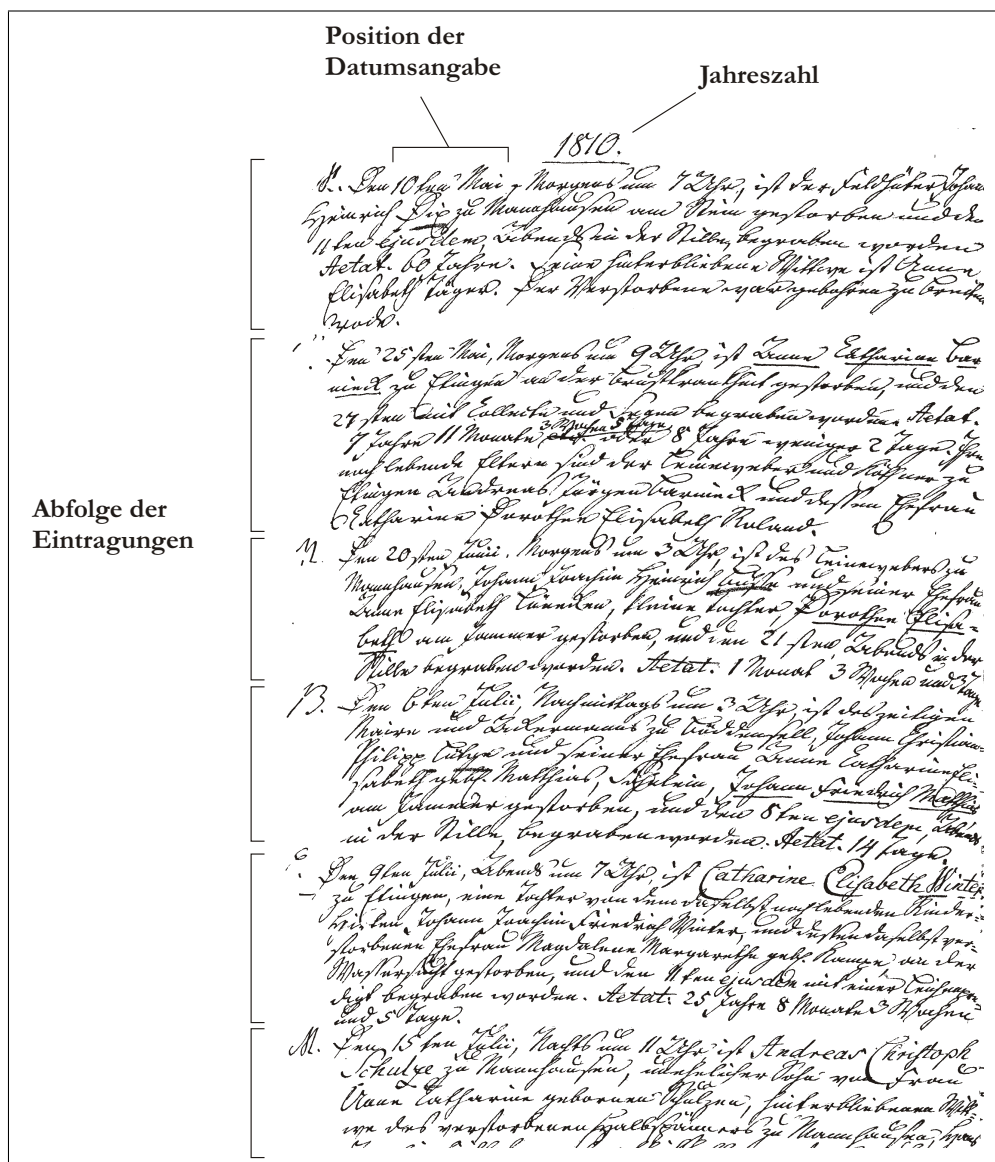 Position der
Datumsangabe
Jahreszahl
1810.
Den 10ten Mai, Morgens um 7 Uhr, ist der Feldhüter Johann
Heinrich Dix zu Mannhausen am Stein gestorben und den
11ten ejusdem, Abends in der Stille, begraben worden
Aetat. 60 Jahre. Seine hinterbliebene Wittwe ist Anne
Elisabeth Jäger. Der Verstorbene war gebohren zu
rode.
Den 25sten Mai, Morgens um 9 Uhr, ist Anne Catharine Bar
nieck zu Etingen an der Brustkrankheit gestorben, und den
27sten mit Collecte und Segen begraben worden. Aetat.
3 Wochen 5 Tage
7 Jahre 11 Monate oder 8 Jahre weniger 2 Tage. Ihre
noch lebende Eltern sind der Leineweber und Köthner zu
Etingen Andreas Jürgen Barnieck und dessen Ehefrau
Catharine Dorothee Elisabeth Roland.
Abfolge der
Eintragungen
M. Den 20sten Junii, Morgens um 3 Uhr, ist des Leinewebers zu
Mannhausen, Johann Joachim Heinrich und seiner Ehefrau
Anne Elisabeth kleine Tochter, Dorothee Elisa-
beth am Jammer gestorben, und den 21sten, Abends in der
Stille begraben worden. Aetat. 1 Monat 3 Wochen und 3 Tage
B. Den 6ten Julii, Nachmittags um 3 Uhr, ist des zeitigen
Maire und Ackermanns zu Böddensell, Johann Christian
Philipp Lütge und seiner Ehefrau Anne Catharine Eli-
sabeth geb. Matthias, Söhnlein, Johann Friedrich Matthias
am Jammer gestorben, und den 8ten ejusdem, Abends
in der Stille, begraben worden. Aetat. 14 Tage.
E. Den 9ten Julii, Abends um 7 Uhr, ist Catharine Elisabeth Winter
zu Etingen, eine Tochter von dem daselbst noch lebenden Rinder-
Hirten, Johann Joachim Friedrich Winter, und dessen daselbst ver-
storbenen Ehefrau Magdalene Margarethe geb. Kampe an der
Wassersucht gestorben, und den 11ten ejusdem mit einer Leichenpre-
digt begraben worden. Aetat. 25 Jahre 8 Monate 3 Wochen
und 5 Tage.
M. Den 15ten Julii, Nachts um 11 Uhr ist Andreas Christoph
Schulze zu Mannhausen, unehelicher Sohn von Frau
Anne Catharine gebornen Schulzen, hinterbliebenen Witt-
we des verstorbenen Halbspänners zu Mannhausen, Hans